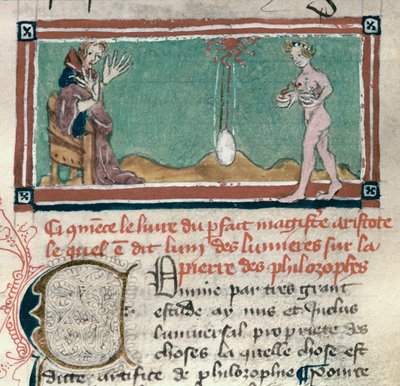 Ci gmẽce le livre du pfait magistre aristote
le quel ẽ dit lumi des lumieres sur la
pierre des philozophes
Cumme par tres grant
estude ay mis et inclus
luniversal propriete des
choses la quelle chose est
ditte artifice de philozophie